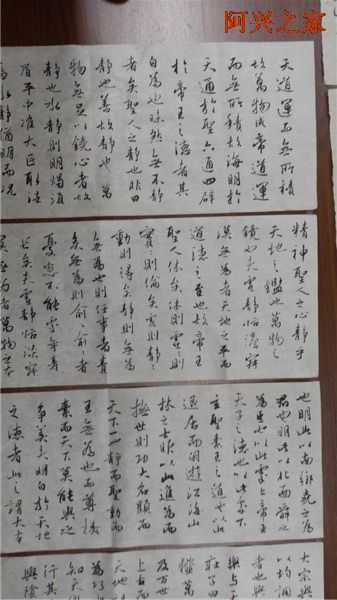 阿兴之家
天道運而無所積
故萬物成帝道運
而無所積故海明於
天通於聖六通四辟
於帝王之德者其
自為也昧然無不靜
者矣聖人之靜也非曰
靜也善故靜也萬
物無足以鐃心者故
靜也水靜則明燭須
眉平中準大匠取法
焉水靜猶明而況
精神聖人之心靜乎
天地之鑑也萬物之
鏡也夫虛靜恬淡寂
漠無為者天地之平而
道德之至也故帝王
聖人休焉休則虛虛則
實實則倫矣虛則靜靜則
動則得矣靜則無為
無為也則任事者責
矣無為則俞俞者
憂患不能處年壽
長矣夫虛靜恬淡寂
漠無為者萬物之本
也明此以南鄉堯之為
君也明此以北面舜之
為臣也以此處上帝王
天子之德也以此處下
玄聖素王之道也以此
退居而閒遊江海山
林之士服以此進為而
撫世則功大名顯而
天下一靜而聖動而
王無為也而尊樸
素而天下莫能與之
爭美夫明白於天地
之德者此之謂大本
大宗與
以均調
者也與
樂與
莊子曰
萬
及萬世
上古而
天地
為巧
知天
行其
與陰